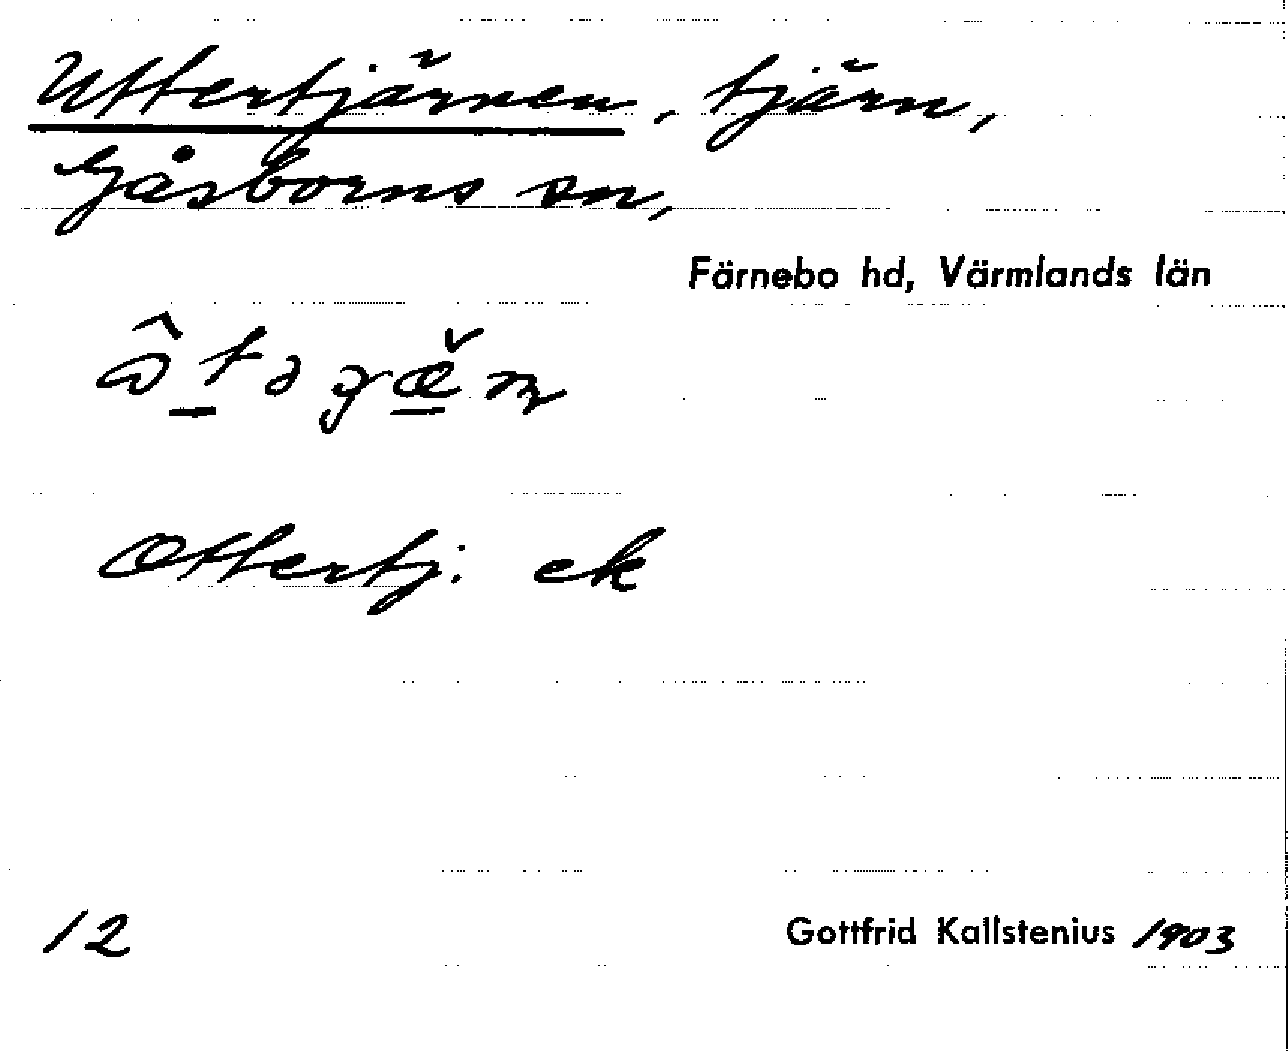 Uttertjärnen, tjärn,
Gåsborns sn,
Färnebo hd, Värmlands län
Ottertj. ek
12
Gottfrid Kallstenius 1903